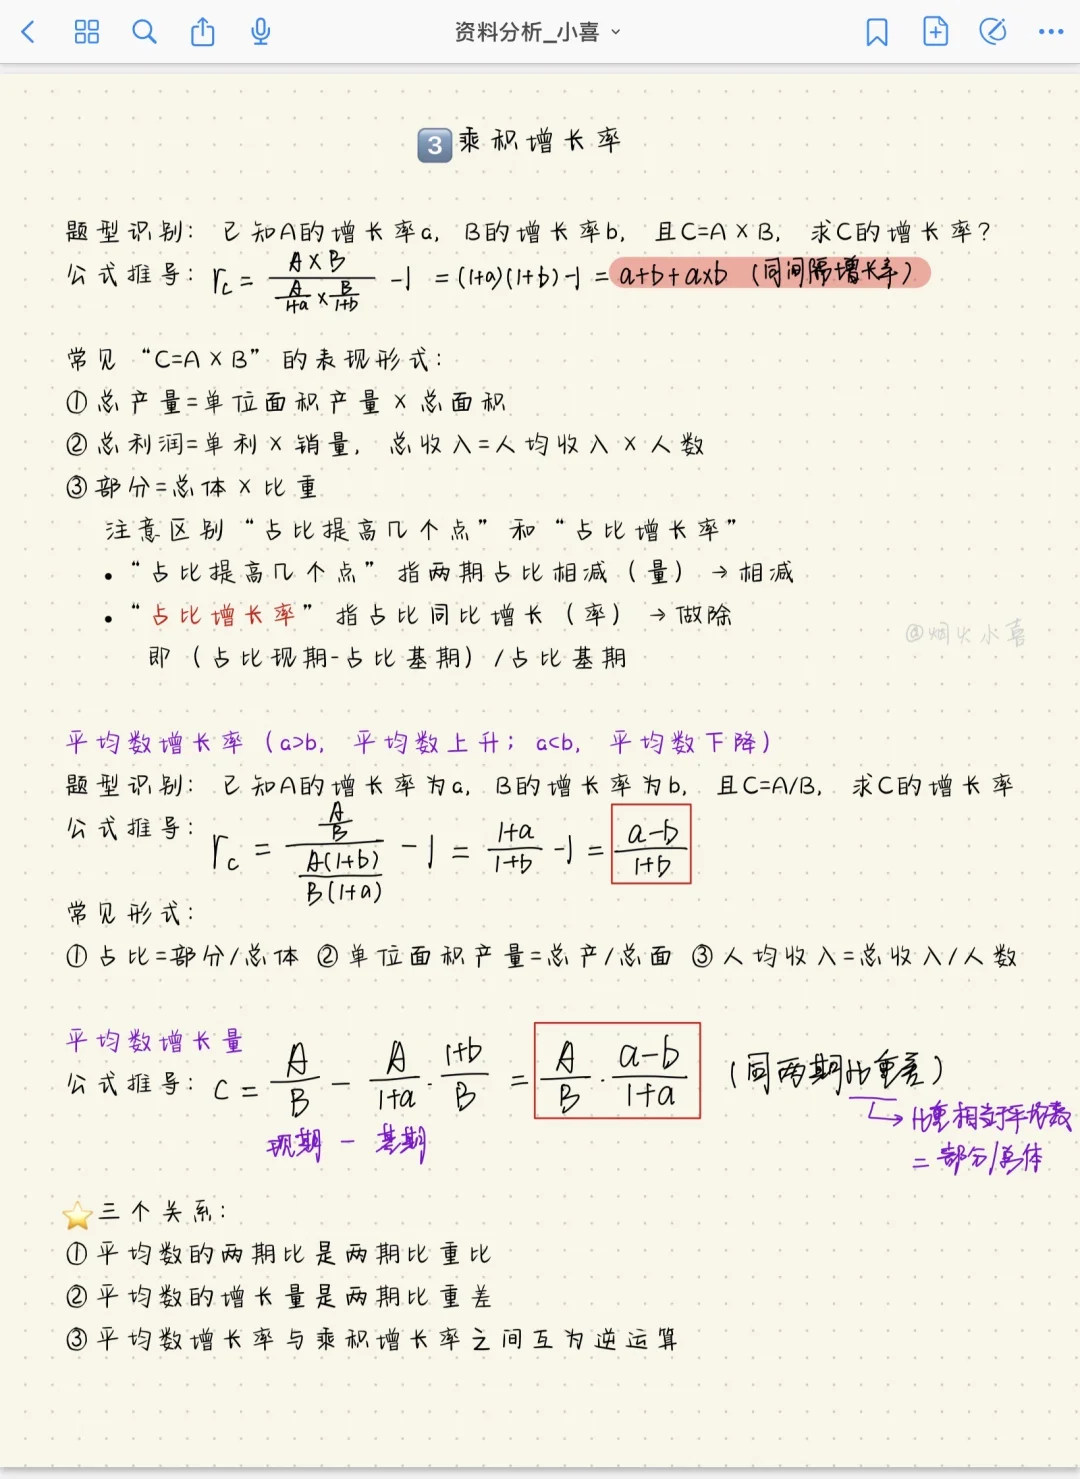 资料分析_小喜
3 乘积增长率
题型识别：已知A的增长率a，B的增长率b，且C=A×B，求C的增长率？
公式推导：rc = (A×B)/(A/(1+a) × B/(1+b)) -1 = (1+a)(1+b)-1 = a+b+a×b（同间隔增长率）
常见“C=A×B”的表现形式：
①总产量=单位面积产量×总面积
②总利润=单利×销量，总收入=人均收入×人数
③部分=总体×比重
注意区别“占比提高几个点”和“占比增长率”
• “占比提高几个点”指两期占比相减（量）→相减
• “占比增长率”指占比同比增长（率）→做除
即（占比现期-占比基期）/占比基期
@烟火小喜
平均数增长率（a>b，平均数上升；a<b，平均数下降）
题型识别：已知A的增长率为a，B的增长率为b，且C=A/B，求C的增长率
公式推导：rc = (A/B)/(A(1+b)/B(1+a)) -1 = (1+a)/(1+b) -1 = (a-b)/(1+b)
常见形式：
①占比=部分/总体 ②单位面积产量=总产/总面 ③人均收入=总收入/人数
平均数增长量
公式推导：C = A/B - A/(1+a) · (1+b)/B = A/B · (a-b)/(1+a)（同两期比重差）
现期 - 基期
→比重相当于平均数
=部分/总体
⭐三个关系：
①平均数的两期比是两期比重比
②平均数的增长量是两期比重差
③平均数增长率与乘积增长率之间互为逆运算